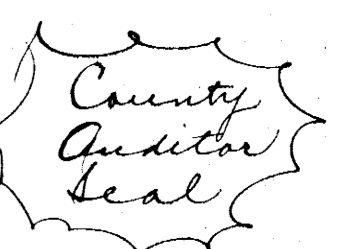 County
Auditor
Seal